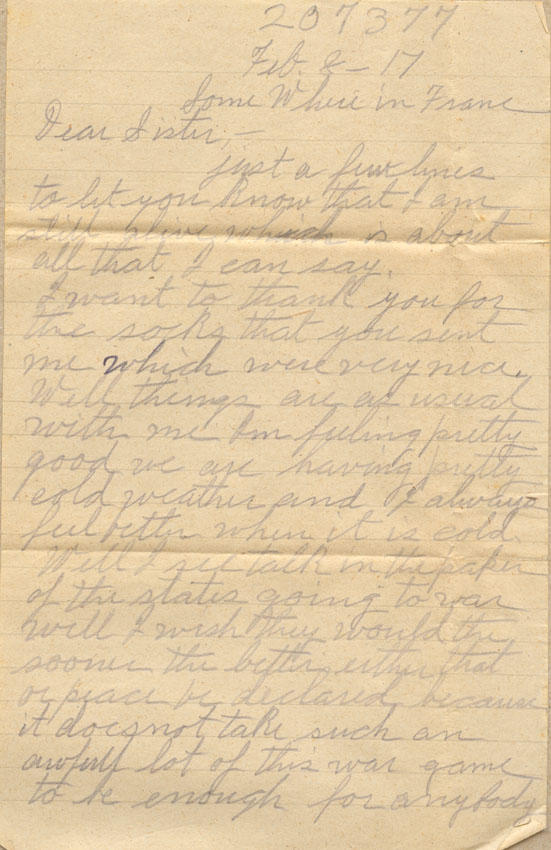 207377
Feb. 8-17
Some Where in Franc
Dear Sister,-
just a few lynes
to let you know that I am
still alive which is about
all that I can say.
I want to thank you for
the socks that you sent
me which were very nice.
Well things are as usual
with me Im feeling pretty
good we are having pretty
cold weather and I always
feel better when it is cold.
Well I see talk in the paper
of the states going to war
well I wish they would the
sooner the better either that
or peace be declared, because
it does not take such an
awfull lot of this war game
to be enough for anybody